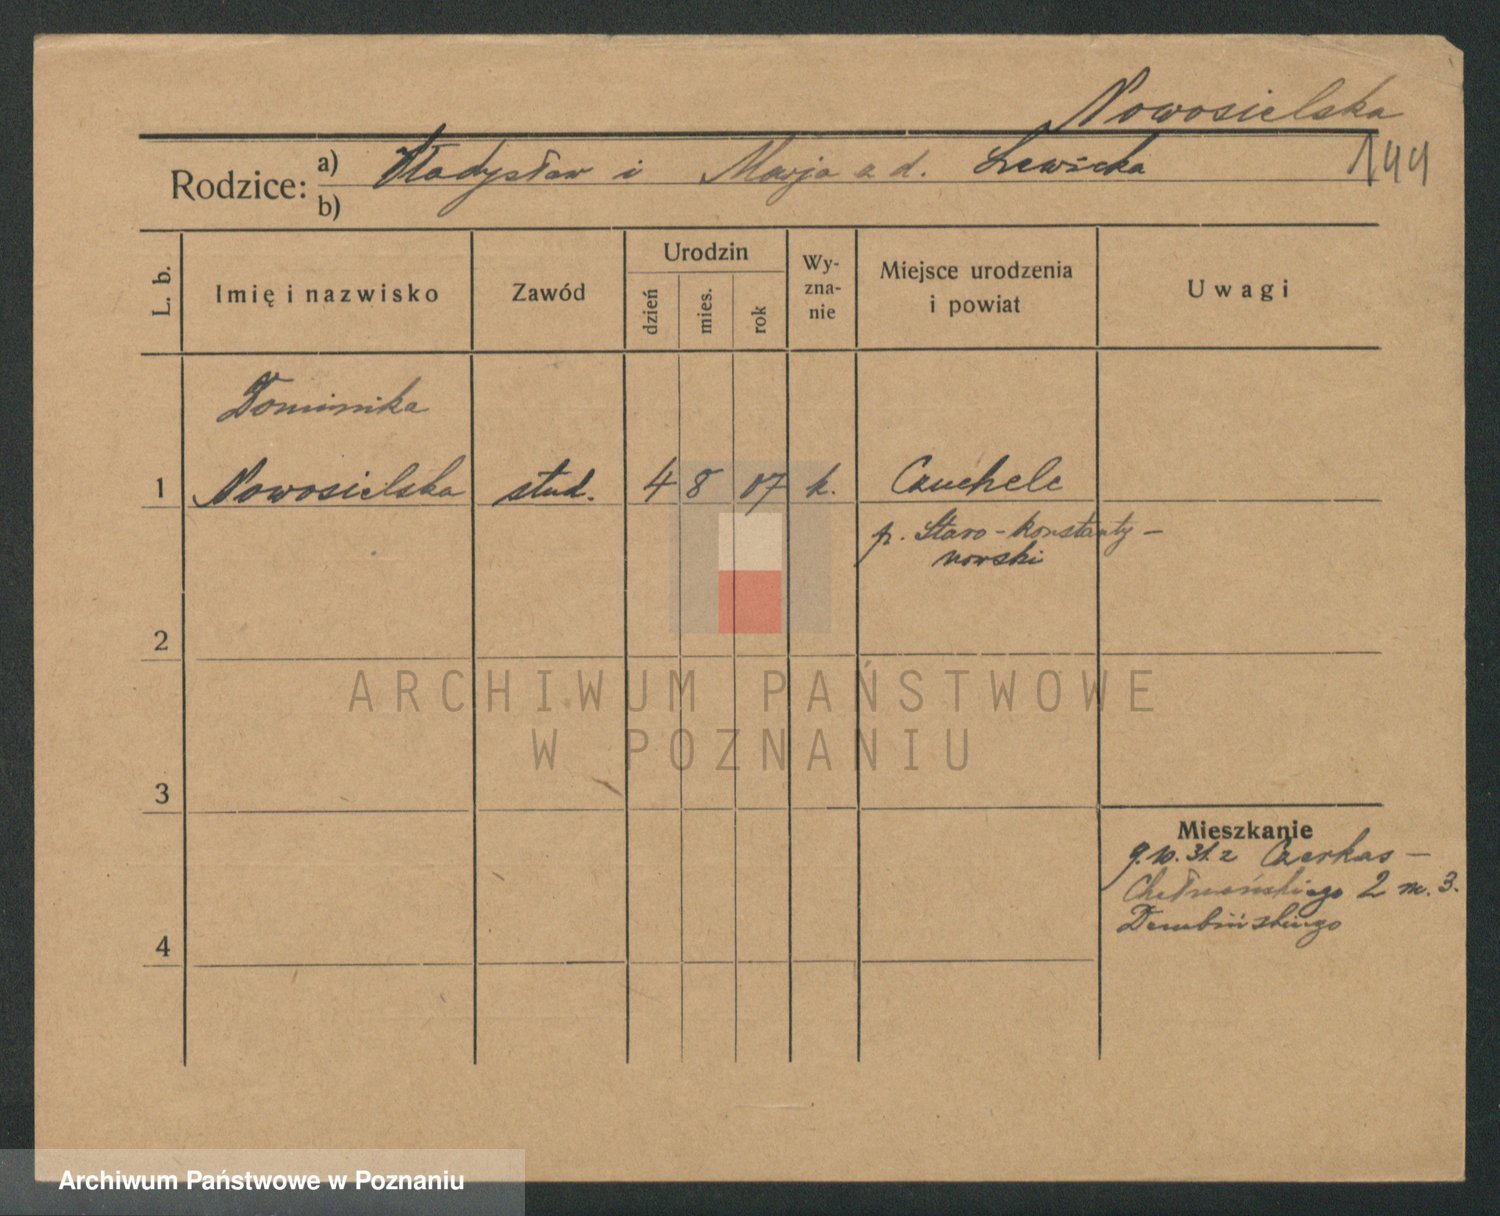 Nowosielska
144
Rodzice: a) Władysław i Marja z d. Lewicka
b)
L. b.
Imię i nazwisko
Zawód
Urodzin
dzień
mies.
rok
Wy-
zna-
nie
Miejsce urodzenia
i powiat
Uwagi
Dominika
1 Nowosielska stud. 4 8 07 k.
p. Staro-konstanty-
nowski
2
ARCHIWUM PAŃSTWOWE
W POZNANIU
3
Mieszkanie
9.10.31. z Czerkas –
Chełmońskiego 2 m. 3.
4
Archiwum Państwowe w Poznaniu